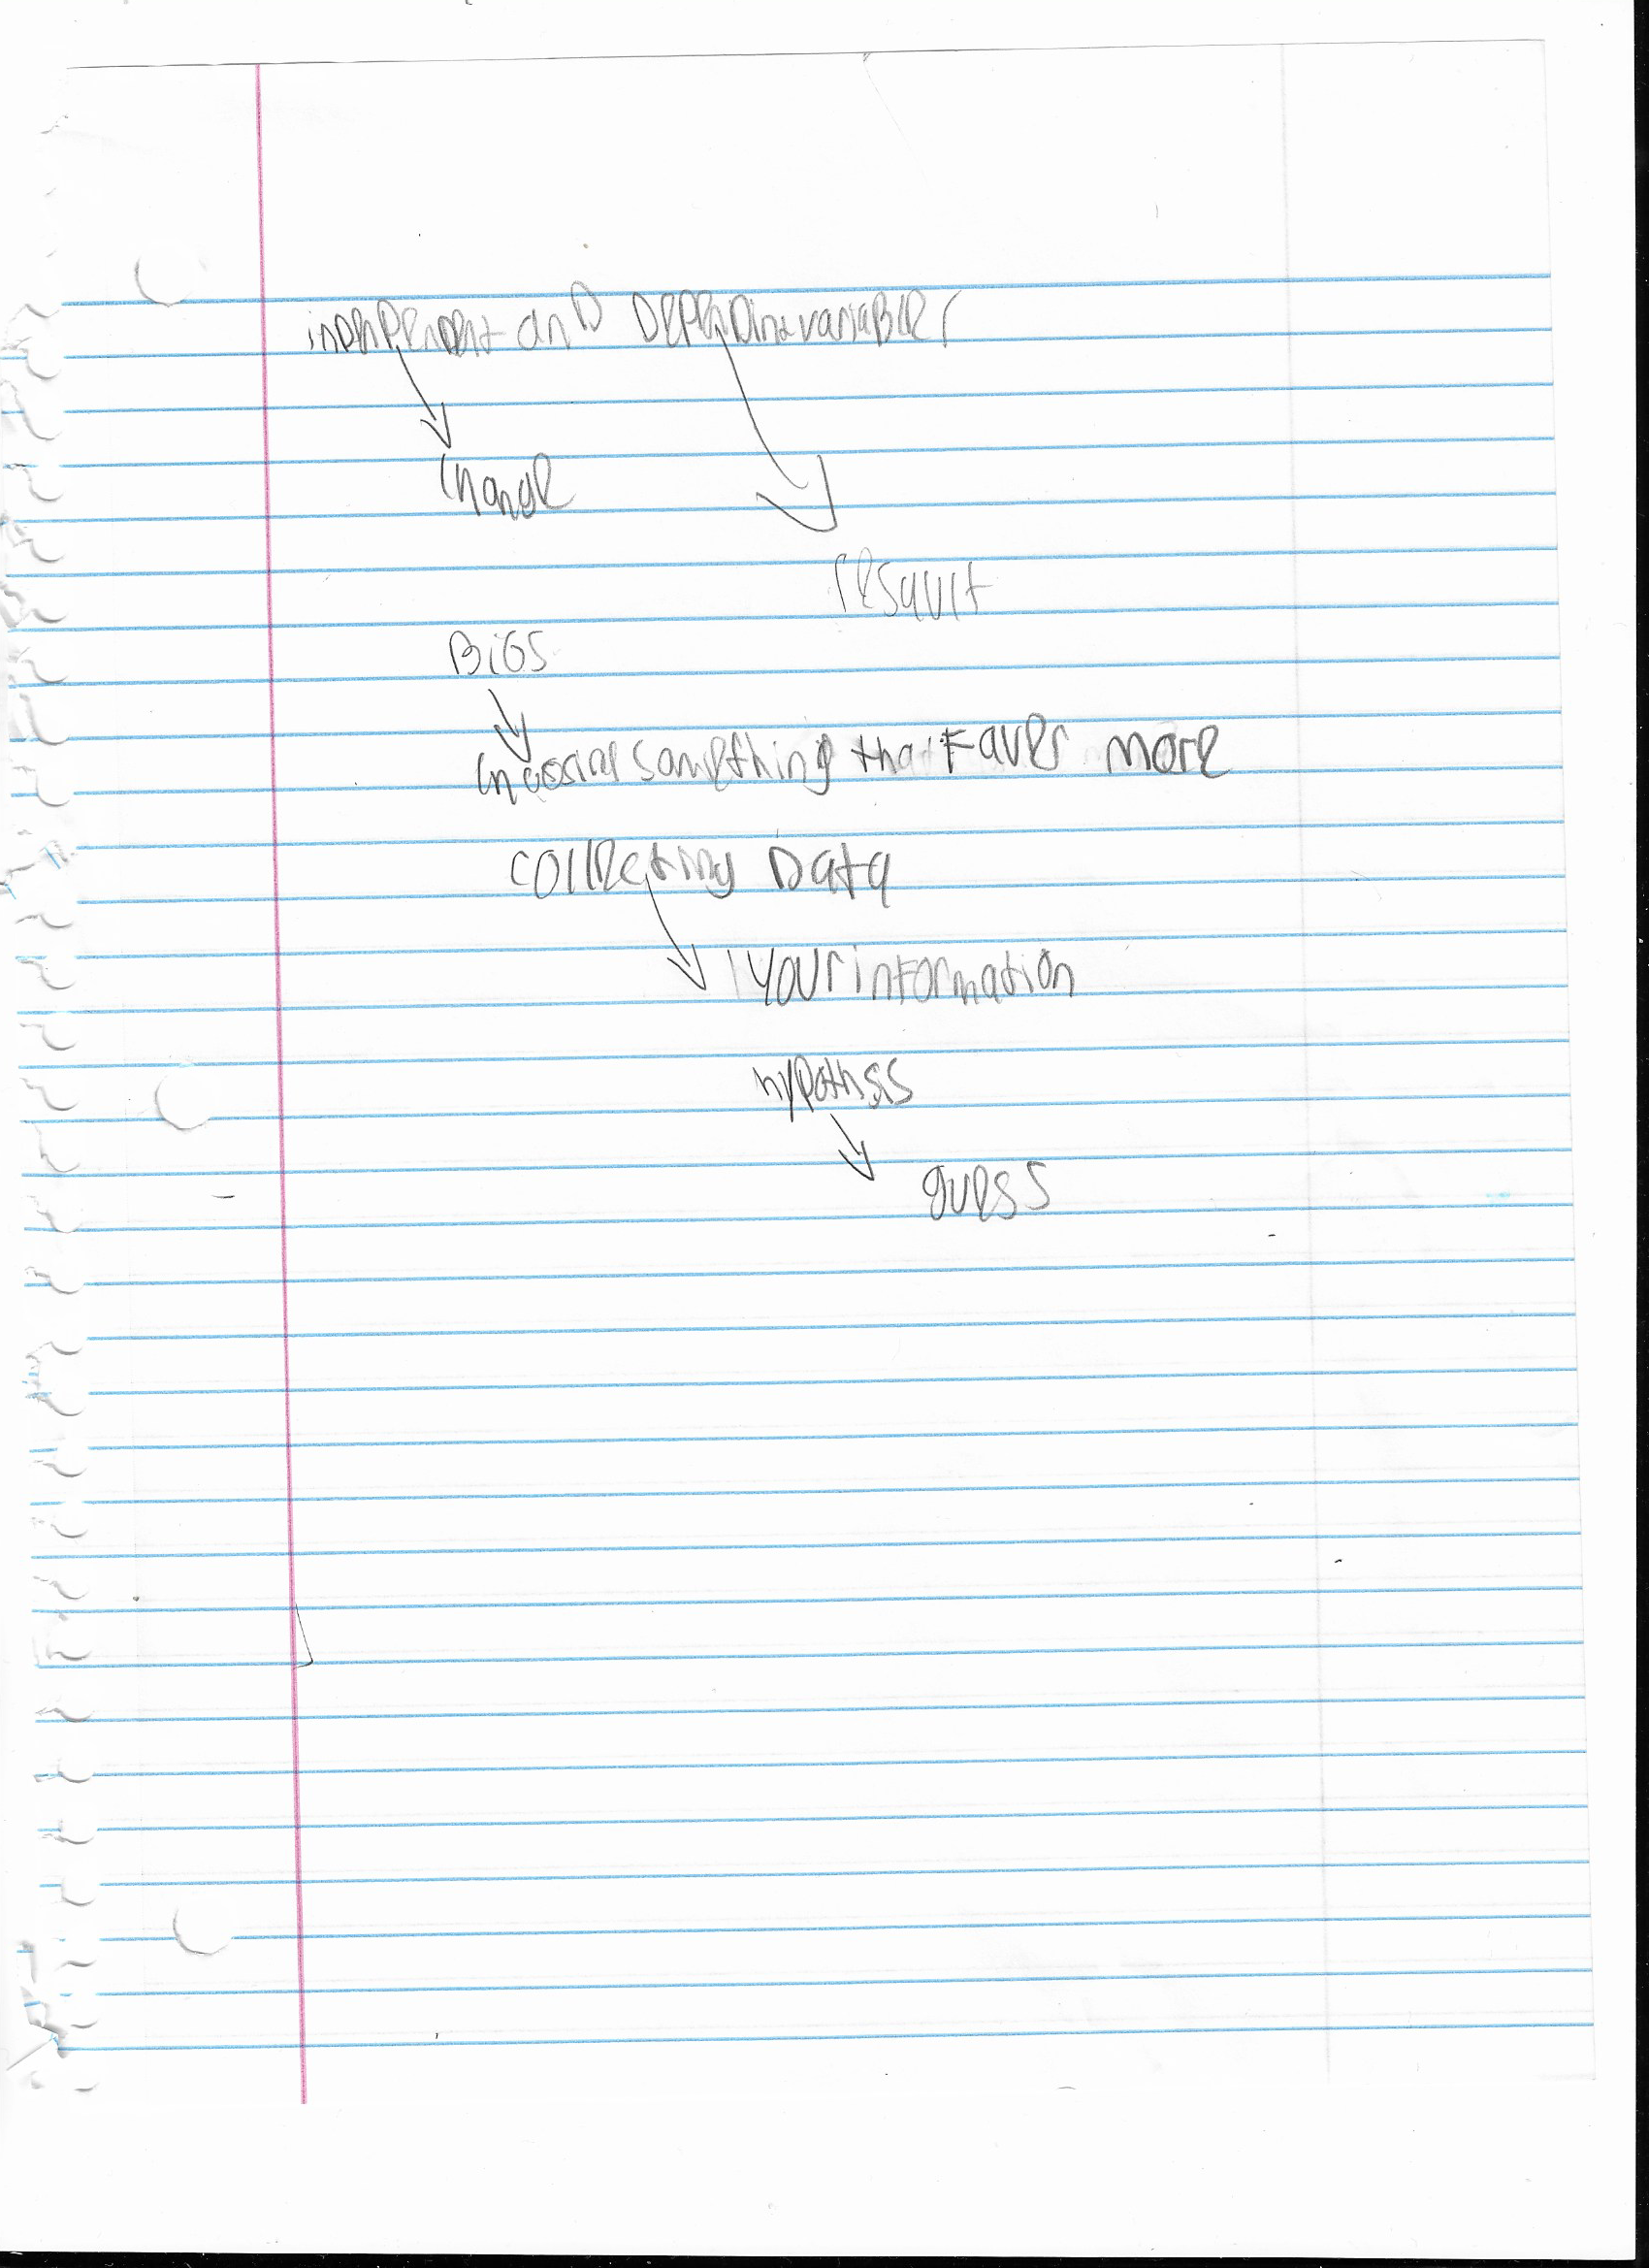 independent and Dependint variables
change
resqult
Bios
choosing somthing that Favers more
collecting Data
your information
hypothsis
guess